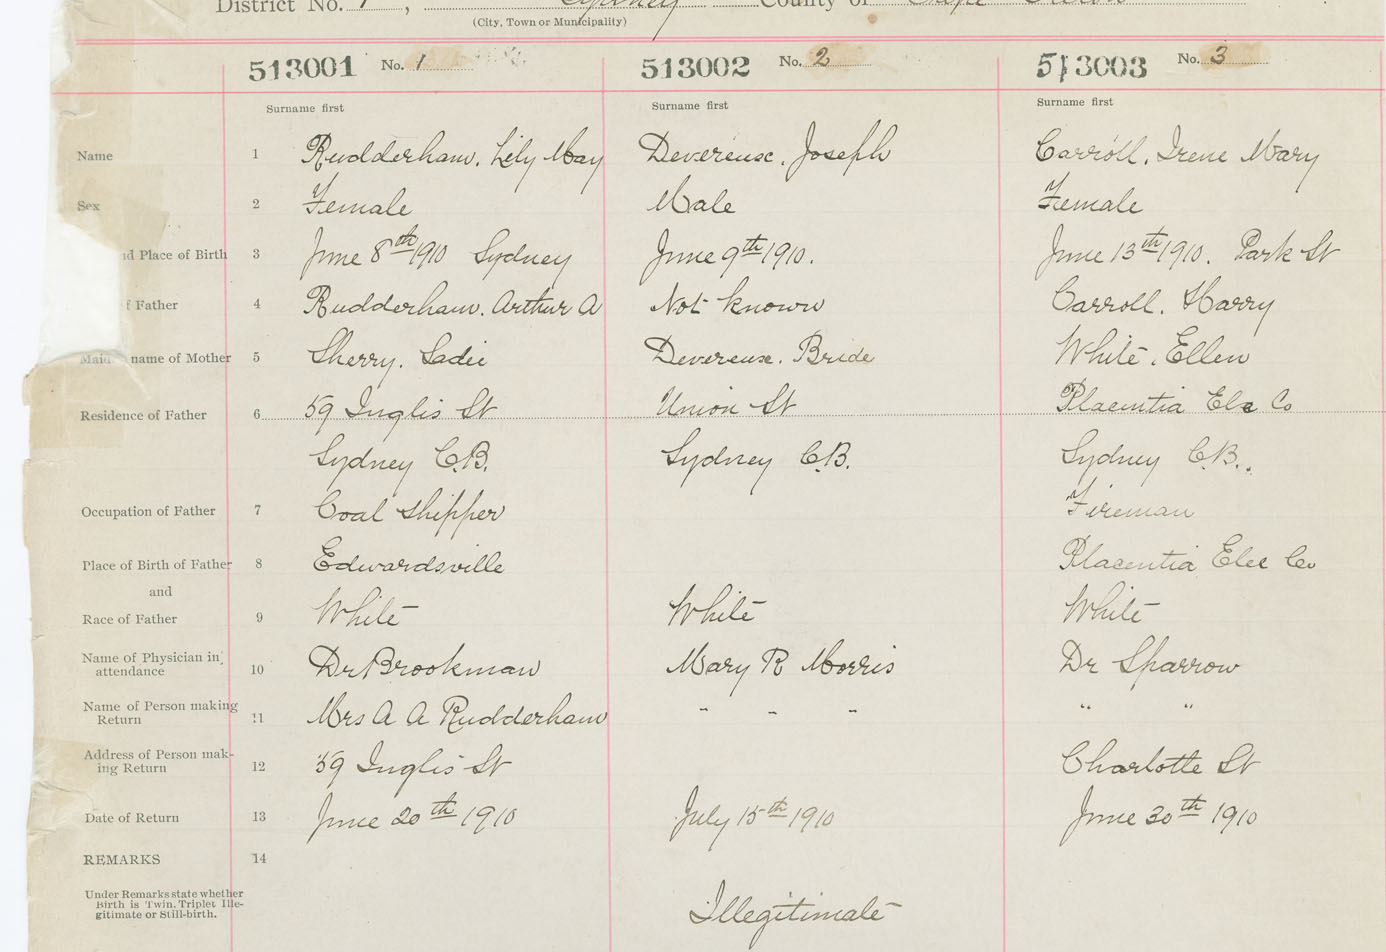 District No. 1, Sydney County of Cape Breton
(City, Town or Municipality)
513001 No. 1 513002 No. 2 513003 No. 3
Surname first Surname first Surname first
Name 1 Rudderham, Lily May Devereux, Joseph Carroll, Irene Mary
Sex 2 Female Male Female
nd Place of Birth 3 June 8th 1910 Sydney June 9th 1910. June 13th 1910. Park St
f Father 4 Rudderham, Arthur A Not known Carroll, Harry
Maid name of Mother 5 Sherry, Sadie Devereux, Bride White, Ellen
Residence of Father 6 59 Inglis St Union St Placentia Elec Co
Sydney C.B. Sydney C.B. Sydney C.B.
Occupation of Father 7 Coal shipper Fireman
Place of Birth of Father 8 Edwardsville Placentia Elec Co
and
Race of Father 9 White White White
Name of Physician in attendance 10 Dr Brookman Mary R Morris Dr Sparrow
Name of Person making Return 11 Mrs A A Rudderham " " " " "
Address of Person mak-
ing Return 12 59 Inglis St Charlotte St
Date of Return 13 June 20th 1910 July 15th 1910 June 30th 1910
REMARKS 14
Under Remarks state whether
Birth is Twin, Triplet Ille-
gitimate or Still-birth.
Illegitimate